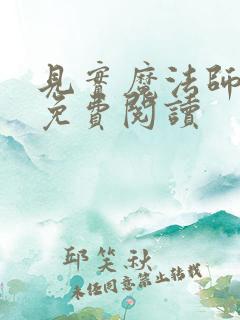 見實魔法師
免費閱讀
邱笑秋
未經同意禁止轉載